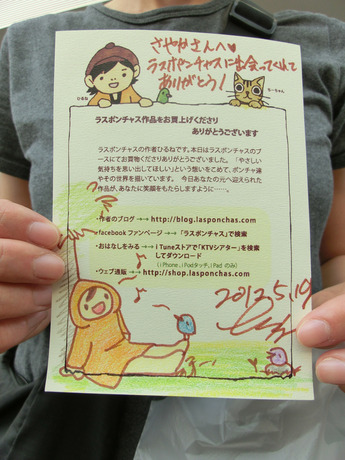 さやかさんへ♥
ラスポンチャスに出会ってくれて
ありがとう!
ひるね
ちーちゃん
ラスポンチャス作品をお買上げくださり
ありがとうございます
ラスポンチャスの作者ひるねです。本日はラスポンチャスのブ
ースにてお買物くださりありがとうございました。「やさしい
気持ちを思い出してほしい」という想いをこめて、ポンチャ達
やその世界を描いています。 今日あなたの元へ迎えられた
作品が、あなたに笑顔をもたらしますように……。
・作者のブログ →→ http://blog.lasponchas.com
・facebook ファンページ →→「ラスポンチャス」で検索
・おはなしをみる →→ iTuneストアで「KTVシアター」を検索
してダウンロード
(iPhone、iPodタッチ、iPad のみ)
・ウェブ通販 →→ http://shop.lasponchas.com
2012.5.19